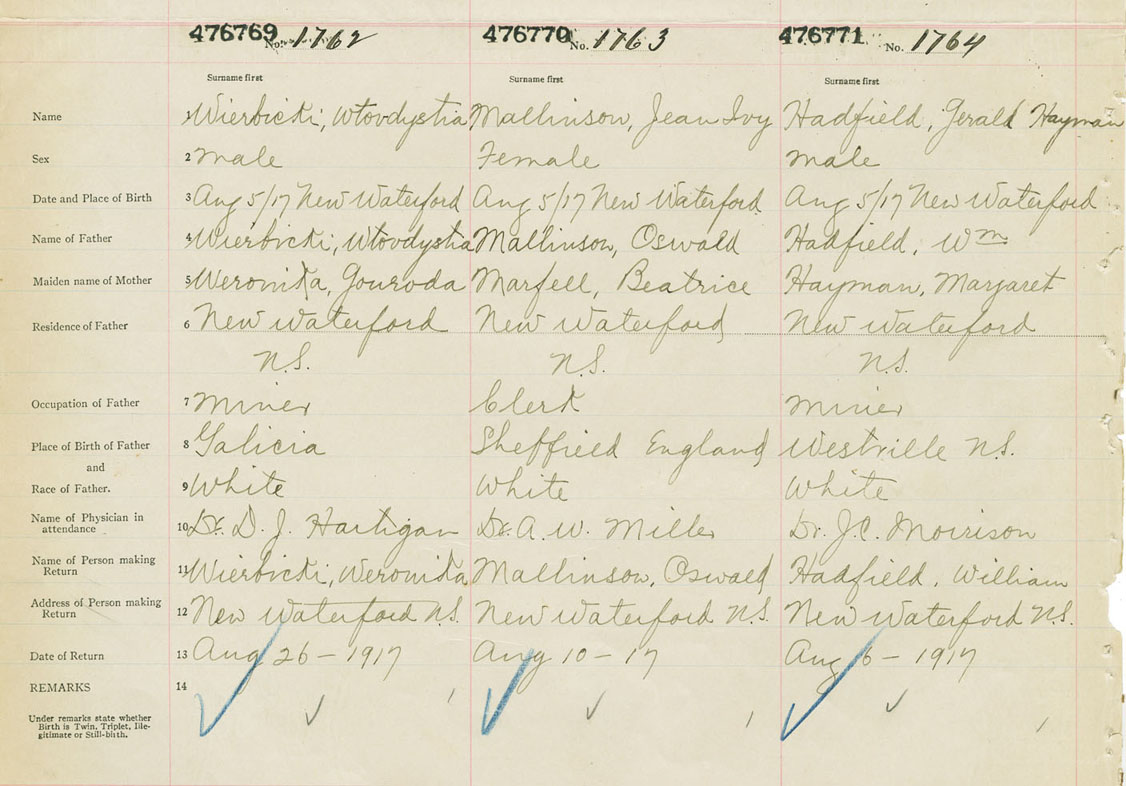 476769 No. 1762 476770 No. 1763 476771 No. 1764
Surname first Surname first Surname first
Name 1 Wierbicki, Wtovdystia Mallinson, Jean Ivy Hadfield, Gerald Hayman
Sex 2 male Female male
Date and Place of Birth 3 Aug 5/17 New Waterford Aug 5/17 New Waterford Aug 5/17 New Waterford
Name of Father 4 Wierbicki, Wtovdystia Mallinson, Oswald Hadfield, Wm
Maiden name of Mother 5 Weronika, Gouroda Marfell, Beatrice Hayman, Margaret
Residence of Father 6 New Waterford New Waterford New Waterford
N.S. N.S. N.S.
Occupation of Father 7 miner Clerk miner
Place of Birth of Father 8 Galicia Sheffield England Westville N.S.
and
Race of Father. 9 White White White
Name of Physician in attendance 10 Dr. D. J. Hartigan Dr. A. W. Miller Dr. J.C. Morrison
Name of Person making Return 11 Wierbicki, Weronika Mallinson, Oswald Hadfield, William
Address of Person making Return 12 New Waterford N.S. New Waterford N.S. New Waterford N.S.
Date of Return 13 Aug 26 – 1917 Aug 10 – 17 Aug 6 – 1917
REMARKS 14
Under remarks state whether
Birth is Twin, Triplet, Ille-
gitimate or Still-birth.